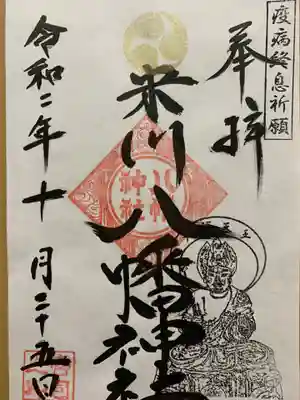 疫病終息祈願
奉拝
米川八幡神社
八幡神社
令和二年十月二十五日